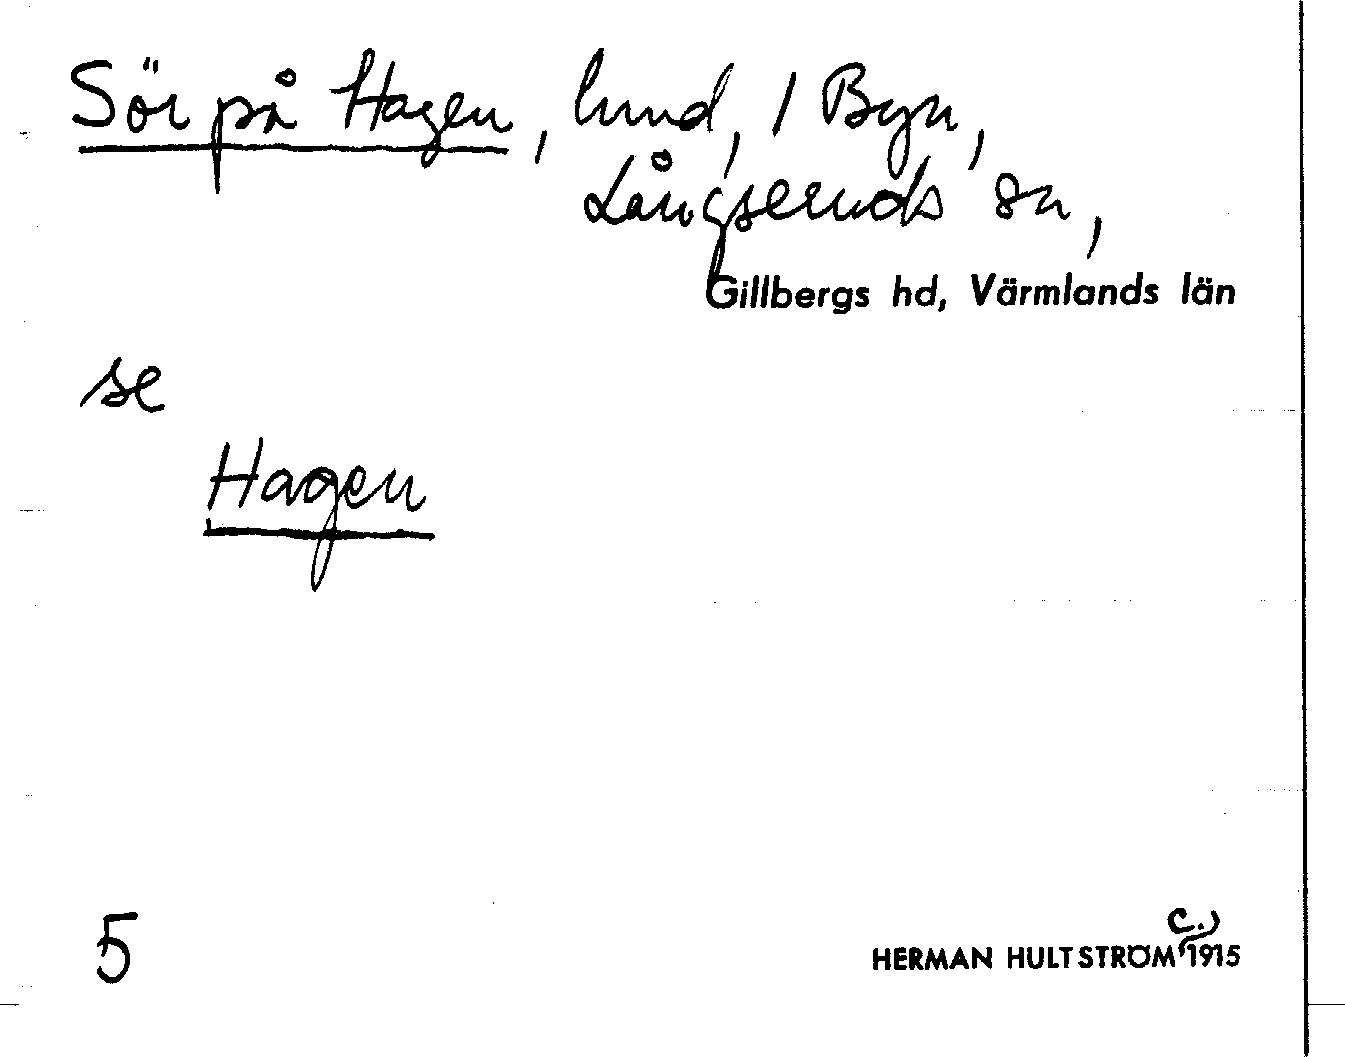 Sör på Hagen, lund, 1 Byn,
Långseruds sn,
Gillbergs hd, Värmlands län
se
Hagen
5
c.
HERMAN HULTSTRÖM 1915